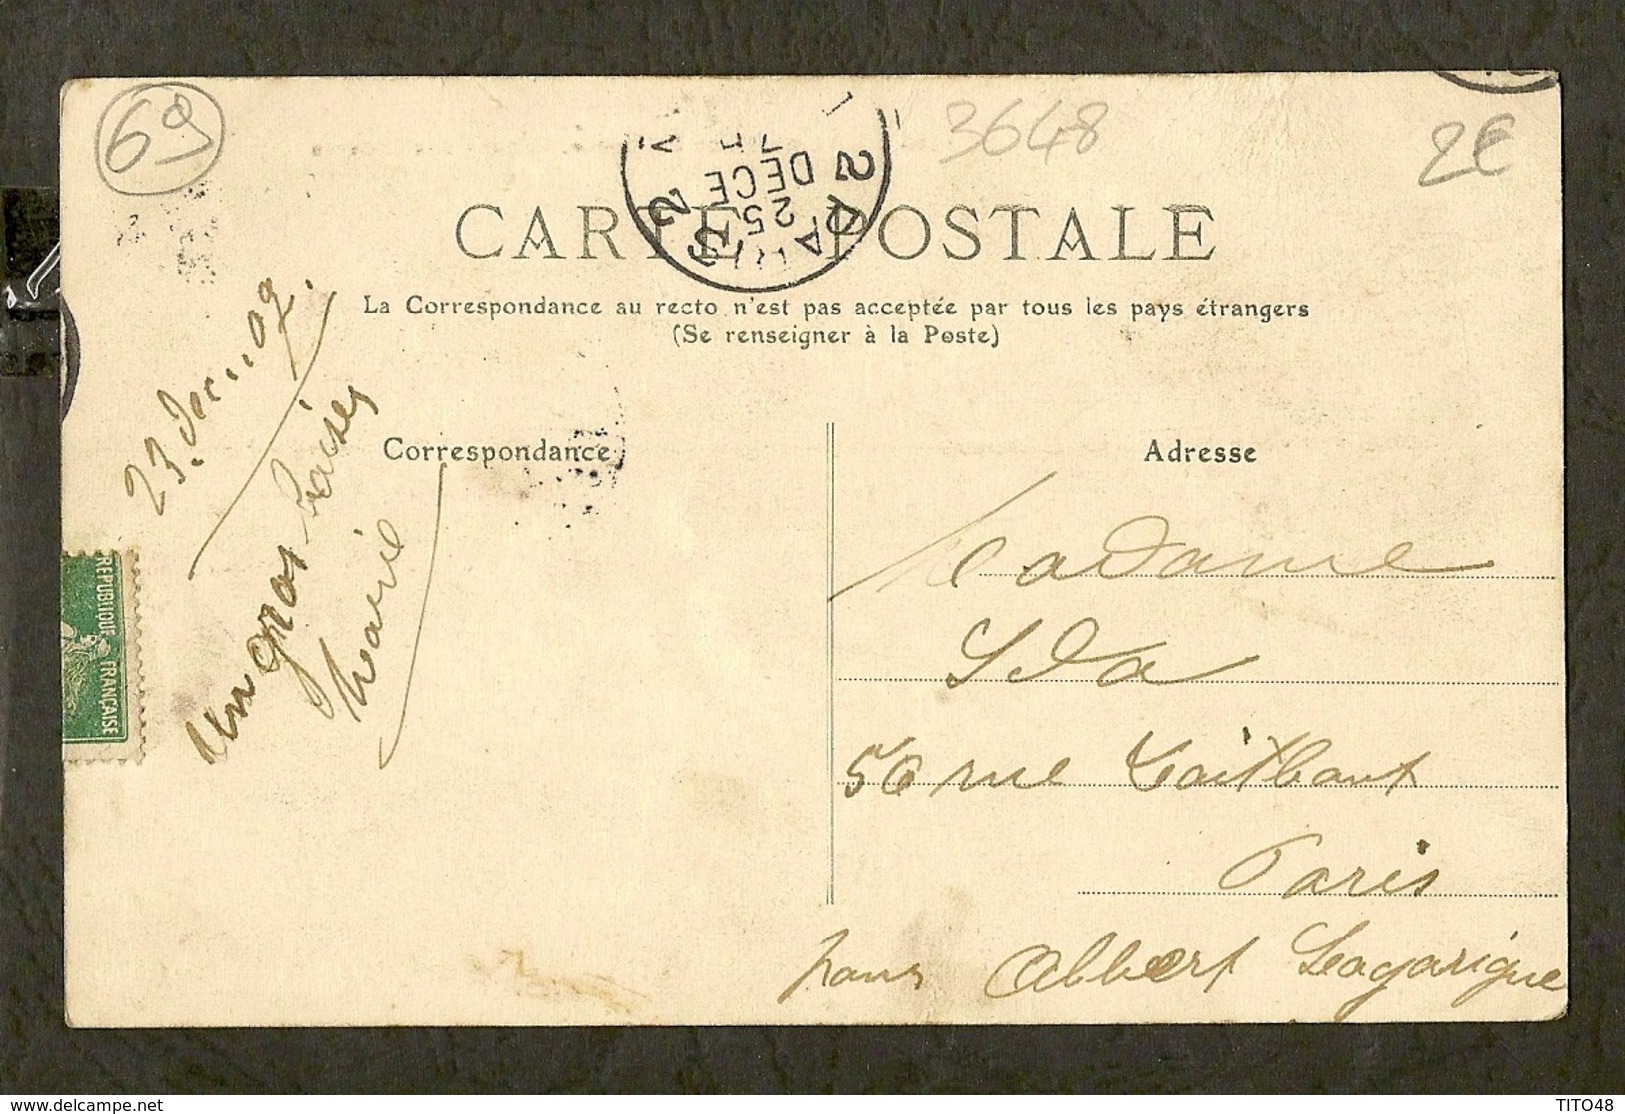 69
3648
2€
PARIS 2
25
DECE
CARTE POSTALE
La Correspondance au recto n'est pas acceptée par tous les pays étrangers
(Se renseigner à la Poste)
Correspondance
Adresse
23 Dec. 09.
un gros baiser
Marie
REPUBLIQUE FRANÇAISE
Madame
Ida
56 rue Taitbout
Paris
pour Albert Lagarigue
delcampe.net
TITO48